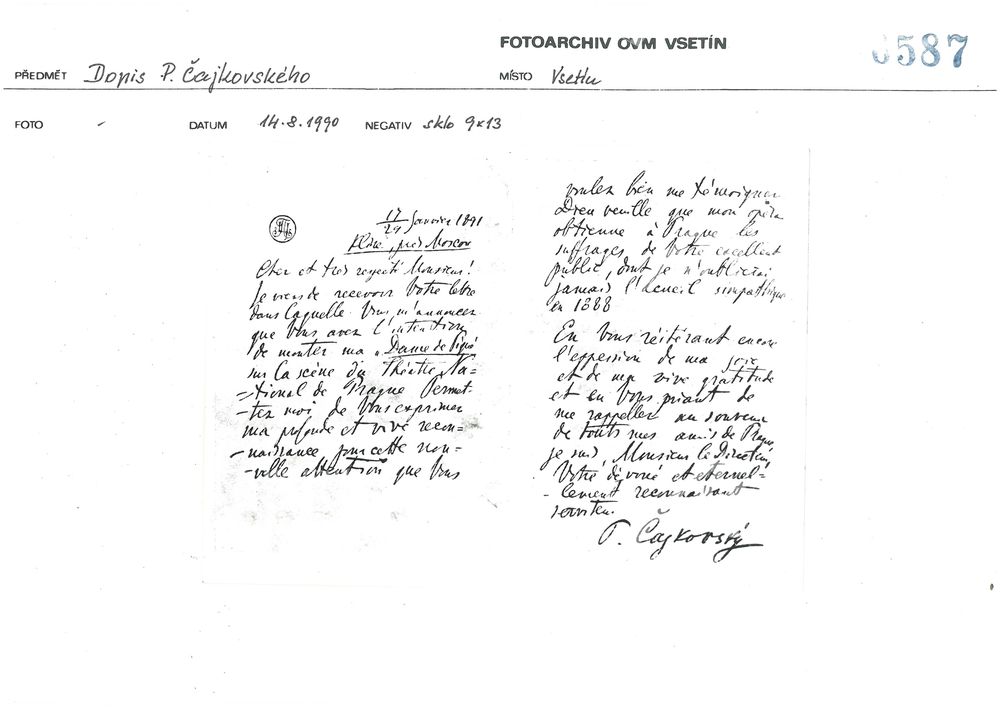 FOTOARCHIV OVM VSETÍN
6587
PŘEDMĚT Dopis P. Čajkovského
MÍSTO Vsetín
FOTO -
DATUM 14.8.1990
NEGATIV sklo 9x13
17/29 Janvier 1891
Klin, près Moscou
Cher et très respecté Monsieur!
Je viens de recevoir Votre lettre
dans laquelle Vous m'annoncez
que Vous avez l'intention
de monter ma „Dame de Pique
sur la scène du Théâtre Na-
-tional de Prague Permet-
-tez moi de Vous exprimer
ma profonde et vive recon-
-naissance pour cette nou-
-velle attention que Vous
voulez bien me témoigner
Dieu veuille que mon opéra
obtienne à Prague les
suffrages de Votre excellent
public, dont je n'oublierai
jamais l'acueil simpathique
en 1888
En Vous réitérant encore
l'expession de ma joie
et de ma vive gratitude
et en Vous priant de
me rappeller au souvenir
de touts mes amis de Prague
je suis, Monsieur le Directeur,
Votre dévoué et eternel-
-lement reconnaissant
serviteur.
P. Čajkovský